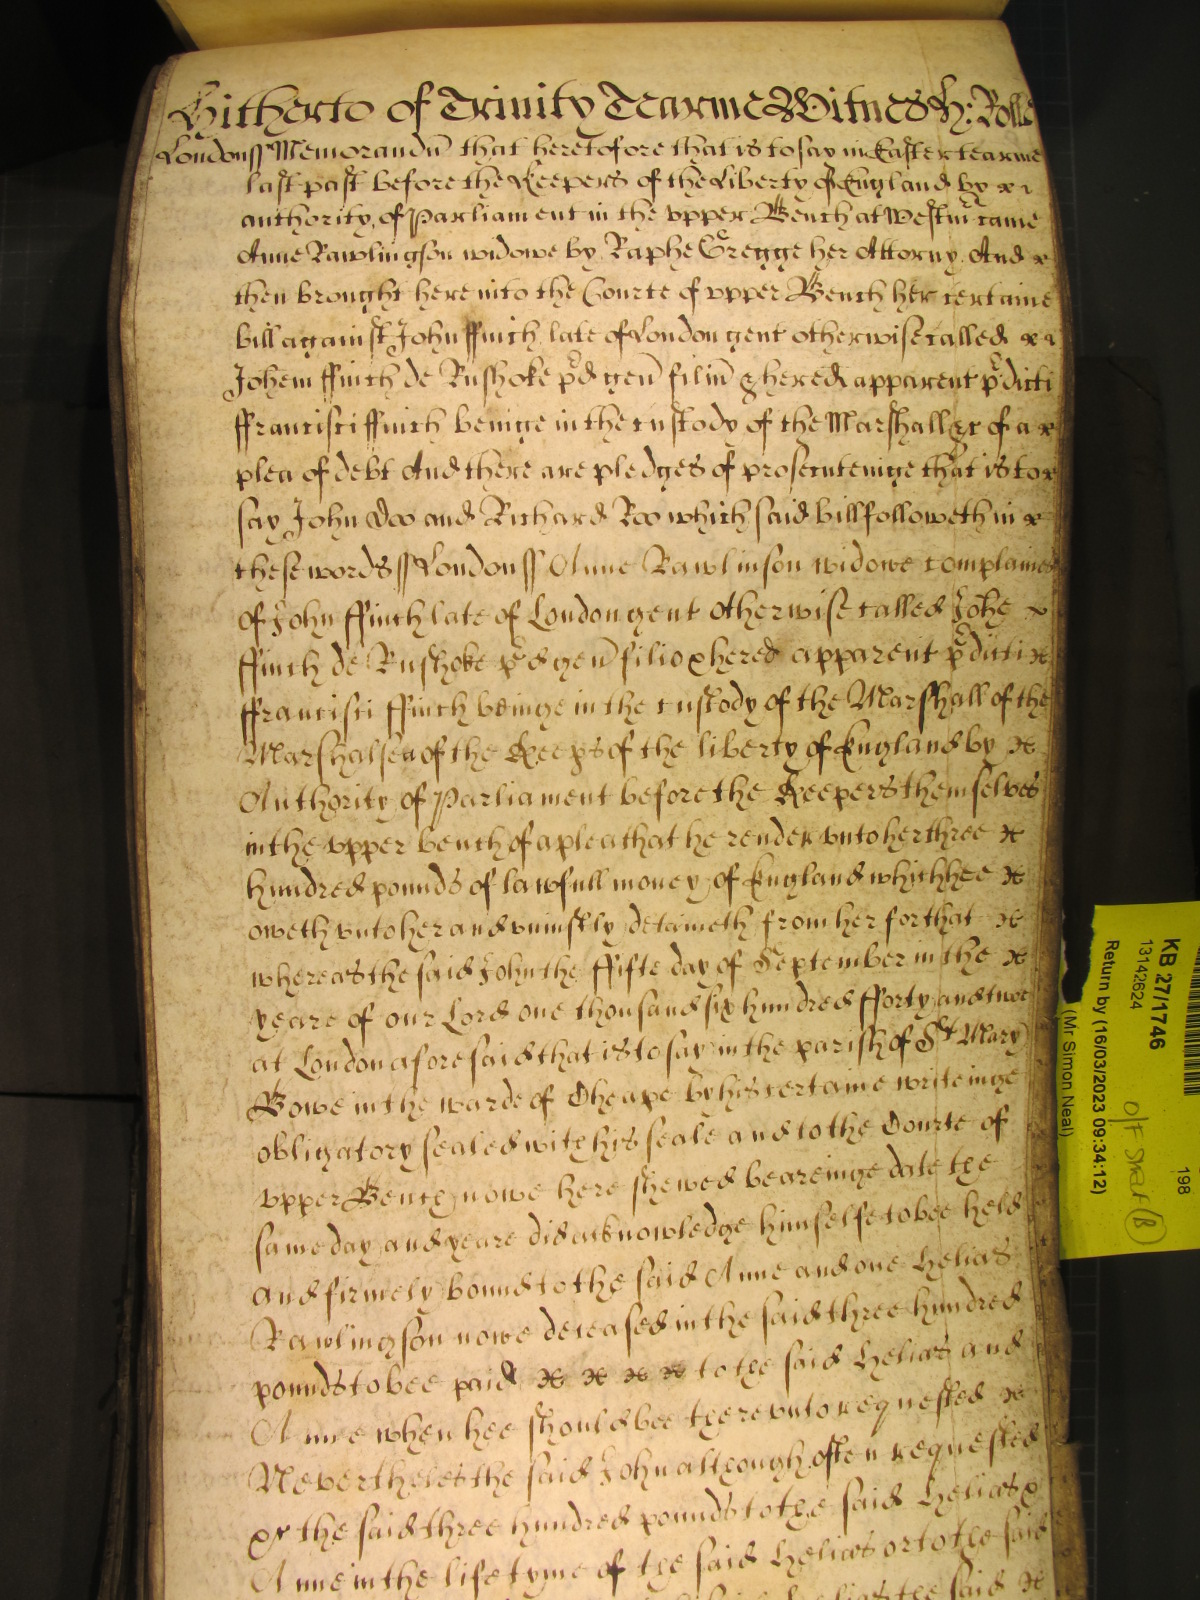 Hitherto of Trinity Tearme Witnes H: Rolle
London ss Memorandū that heretofore that is to say in Easter tearme
last past before the Keepers of the Liberty of England by x x
authority of Parliament in the vpper Bench at Westmr came
Anne Rawlingson widowe by Raphe Gregge her Attorny And x
then brought here into the Courte of vpper Bench her certaine
bill against John ffinch late of London gent otherwise called x x
Johem ffinch de Rushoke p̄d gen̄ filiū & hered apparent p̄dicti
ffrancisci ffinch beinge in the custody of the Marshall &c of a x
plea of debt And there are pledges of prosecuteinge that is to x
say John Doo and Richard Roo which said bill followeth in x
these words ss London ss Anne Rawlinson widowe complaines
of John ffinch late of London gent otherwise called Johe x
ffinch de Rushoke p̄d gen̄ filio & hered apparent p̄dicti x
ffrancisci ffinch beinge in the custody of the Marshall of the
Marshalsea of the Keeps of the liberty of England by x
Authority of Parliament before the Keepers themselves
in the vpper bench of a plea that he render vnto her three x
hundred pounds of lawfull money of England which hee x
oweth vnto her and vniustly detaineth from her for that x
whereas the said John the ffifte day of September in the x
yeare of our Lord one thousand six hundred fforty and two
at London aforesaid that is to say in the parish of St Mary
Bowe in the warde of Cheape by his certaine writeinge
obligatory sealed with his seale and to the Courte of
vpper Bench nowe here shewed beareinge date the
same day and yeare did acknowledge himselfe to bee held
and firmely bound to the said Anne and one Helias
Rawlingson nowe deceased in the said three hundred
pounds to bee paid x x x x to the said Helias and
Anne when hee should bee therevnto requested x
Neverthelesthe said John although often requested
&c the said three hundred pounds to the said Helias x
Anne in the life tyme of the said Helias or to the said
Helias the said x
KB 27/1746
13142624
198
Return by (16/03/2023 09:34:12)
(Mr Simon Neal)